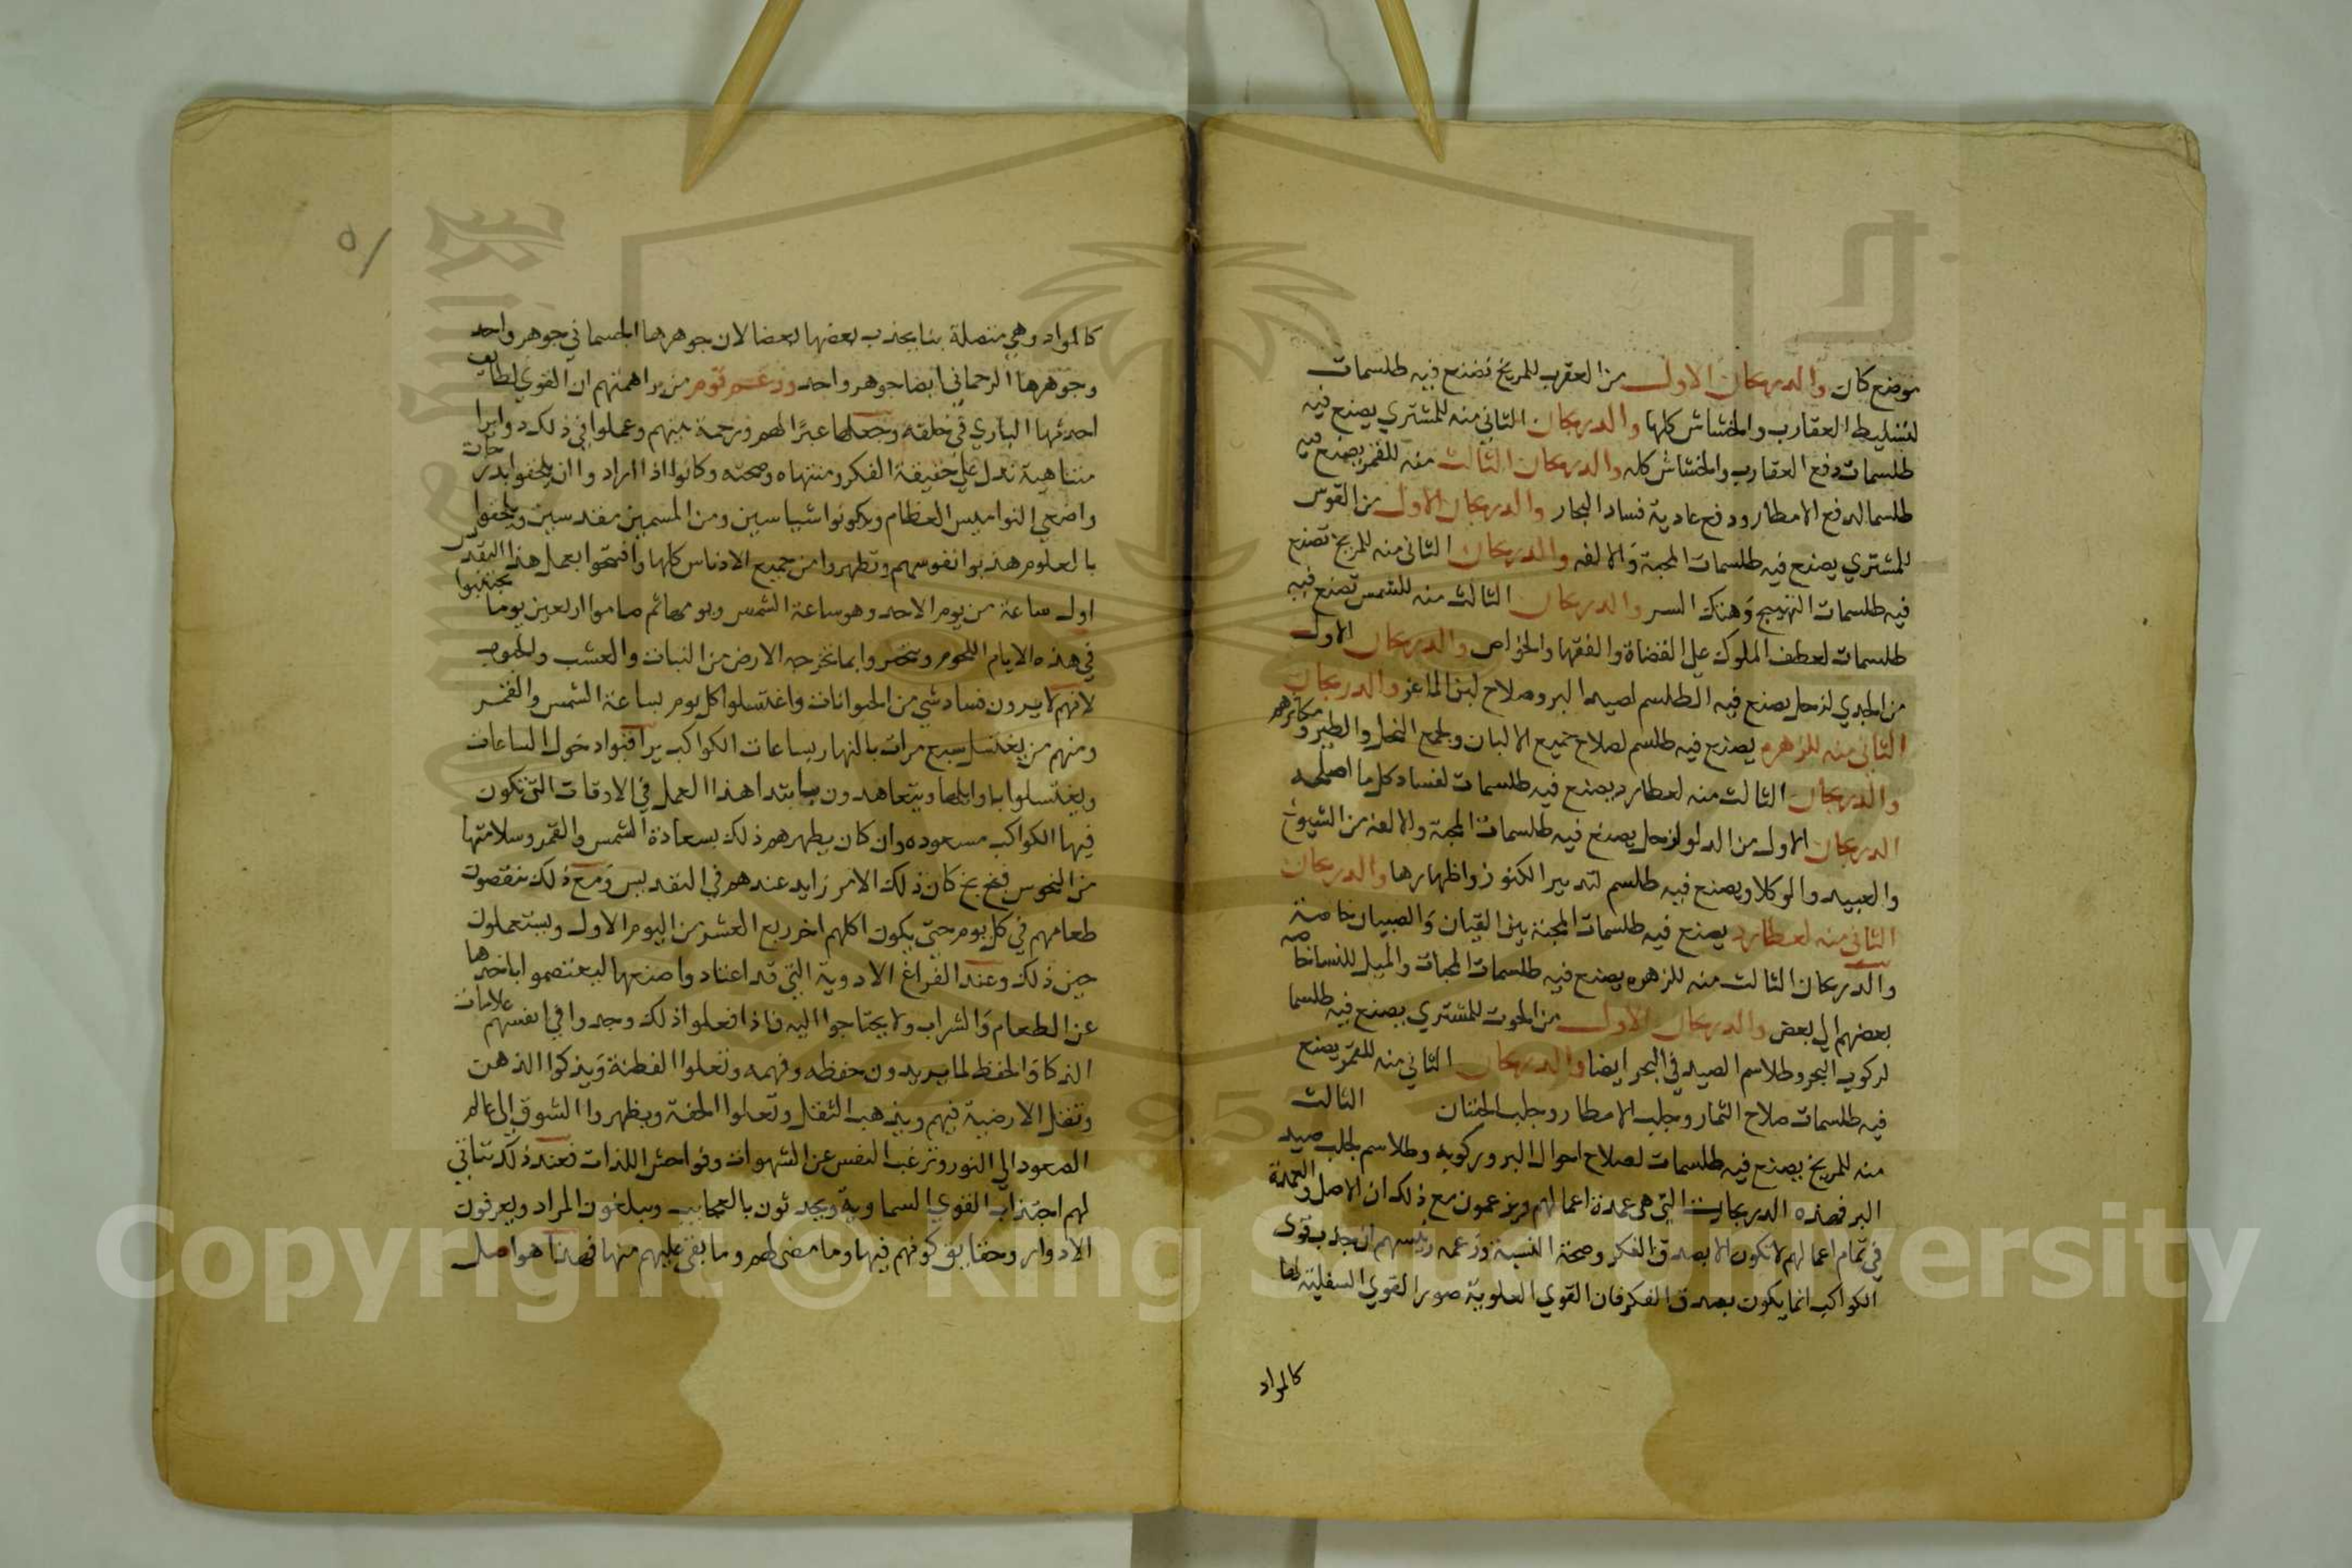 موضع كان والدريجان الاول من العقرب للمريخ تصنع فيه طلسمات
لتسليط العقارب والخشاش كلها والدريجان الثاني منه للمشتري يصنع فيه
طلسمات دفع العقارب والخشاش كله والدريجان الثالث منه للقمر يصنع فيه
طلسما لدفع الامطار ودفع عادية فساد البحار والدريجان الاول من القوس
للمشتري يصنع فيه طلسمات المحبة والالفه والدريجان الثاني منه للمريخ تصنع
فيه طلسمات التهييج وهتك الستر والدريجان الثالث منه للشمس تصنع فيه
طلسمات لعطف الملوك علي القضاة والفقها والخواص والدريجان الاول
من الجدي لزحل يصنع فيه الطلسم لصيد البر وصلاح لبن الماعز والدريجان
الثاني منه للزهره يصنع فيه طلسم لصلاح جميع الالبان ولجمع النحل والطير
والدريجان الثالث منه لعطارد يصنع فيه طلسمات لفساد كل ما اصلحه
الدريجان الاول من الدلو لزحل يصنع فيه طلسمات المحبة والالفة من الشيوخ
والعبيد والوكلا ويصنع فيه طلسم لتدبير الكنوز واظهارها والدريجان
الثاني منه لعطارد يصنع فيه طلسمات المحبة بين القيان والصبيان خاصة
والدريجان الثالث منه للزهره يصنع فيه طلسمات المحبات والميل للنسا خاصه
بعضهم الي بعض والدريجان الاول من الحوت للمشتري يصنع فيه طلسما
لركوب البحر وطلاسم الصيد في البحر ايضا والدريجان الثاني منه للقمر يصنع
فيه طلسمات صلاح الثمار وجلب الامطار وجلب الحيتان الثالث
منه للمريخ يصنع فيه طلسمات لصلاح احوال البر وركوبه وطلاسم لجلب صيد
البر فهذه الدريجات التي هي عمدة اعمالهم ويزعمون مع ذلك ان الاصل والعمدة
في تمام اعمالهم لا تكون الا بصدق الفكر وصحة النسبة وزعمه رئيسهم ان جذب قوي
الكواكب انما يكون بصدق الفكر فان القوي العلوية صور القوي السفلية لها
كالمواد
٥١
كالمواد وهي متصلة بنا يجذب بعضها بعضا لان جوهرها الجسماني جوهر واحد
وجوهرها الرحماني ايضا جوهر واحد وزعم قوم من براهمتهم ان القوي لطايف
احدثها الباري في خلقه وجعلها عبرا لهم ورحمة منهم وعملوا في ذلك دوايرا
متناهية تدل علي حقيقة الفكر ومنتهاه وصحته وكانوا اذا ارادوا ان يلحقوا بدرجات
واضعي النواميس العظام ويكونوا شياسيين ومن المسمين مقدسين ويلحقوا
بالعلوم هذبوا نفوسهم وتطهروا من جميع الادناس كلها وافتتحوا بعمل هذا التقدير
اول ساعة من يوم الاحد وهو ساعة الشمس ويومها ثم صاموا اربعين يوما يجتنبوا
في هذه الايام اللحوم وينحصروا بما تخرجه الارض من النبات والعشب والحبوب
لانهم لا يرون فساد شي من الحيوانات واغتسلوا كل يوم بساعة الشمس والقمر
ومنهم من يغتسل سبع مرات بالنهار بساعات الكواكب يراقبوا دخول الساعات
ويغتسلوا باوايلها ويتعاهدون بابتدا هذا العمل في الاوقات التي تكون
فيها الكواكب مسعوده وان كان يطهرهم ذلك بسعادة الشمس والقمر وسلامتها
من النحوس فبخ بخ كان ذلك الامر زايد عندهم في التقديس ومع ذلك ينقصون
طعامهم في كل يوم حتي يكون اكلهم اخر ربع العشر من اليوم الاول ويستعملون
حين ذلك وعند الفراغ الادوية التي قد اعتادوا صنعها ليعتصموا باخذها
عن الطعام والشراب ولا يحتاجوا اليه فاذا فعلوا ذلك وجدوا في انفسهم علامات
الذكا والحفظ لما يريدون حفظه وفهمه وتعلوا الفطنة ويذكوا الذهن
وتقل الارضية فيهم ويذهب الثقل وتعلوا الخفة ويظهروا الشوق الي عالم
الصعود الي النور وترغب النفس عن الشهوات وفواحش اللذات فعند ذلك يتاتي
لهم اجتذاب القوي السماوية ويحدثون بالعجايب ويبلغون المراد ويعرفون
الادوار وحقايق كونهم فيها وما مضي لهم وما بقي عليهم منها فهذا هو اصل
Copyright © King Saud University